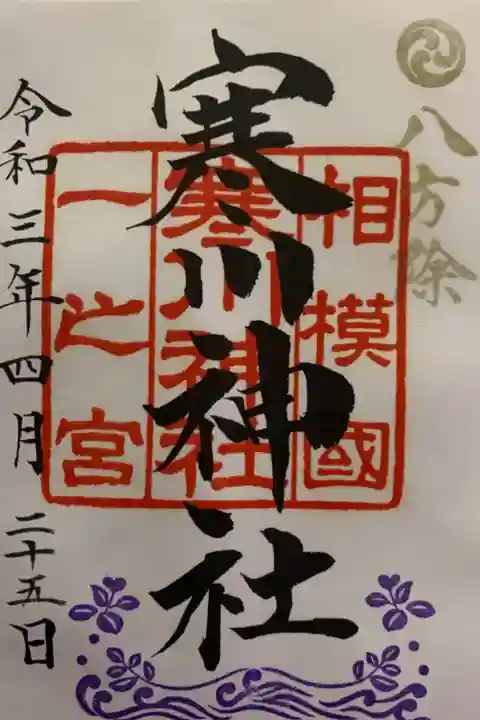 八方除
寒川神社
相模國
寒川神社
一之宮
令和三年四月二十五日